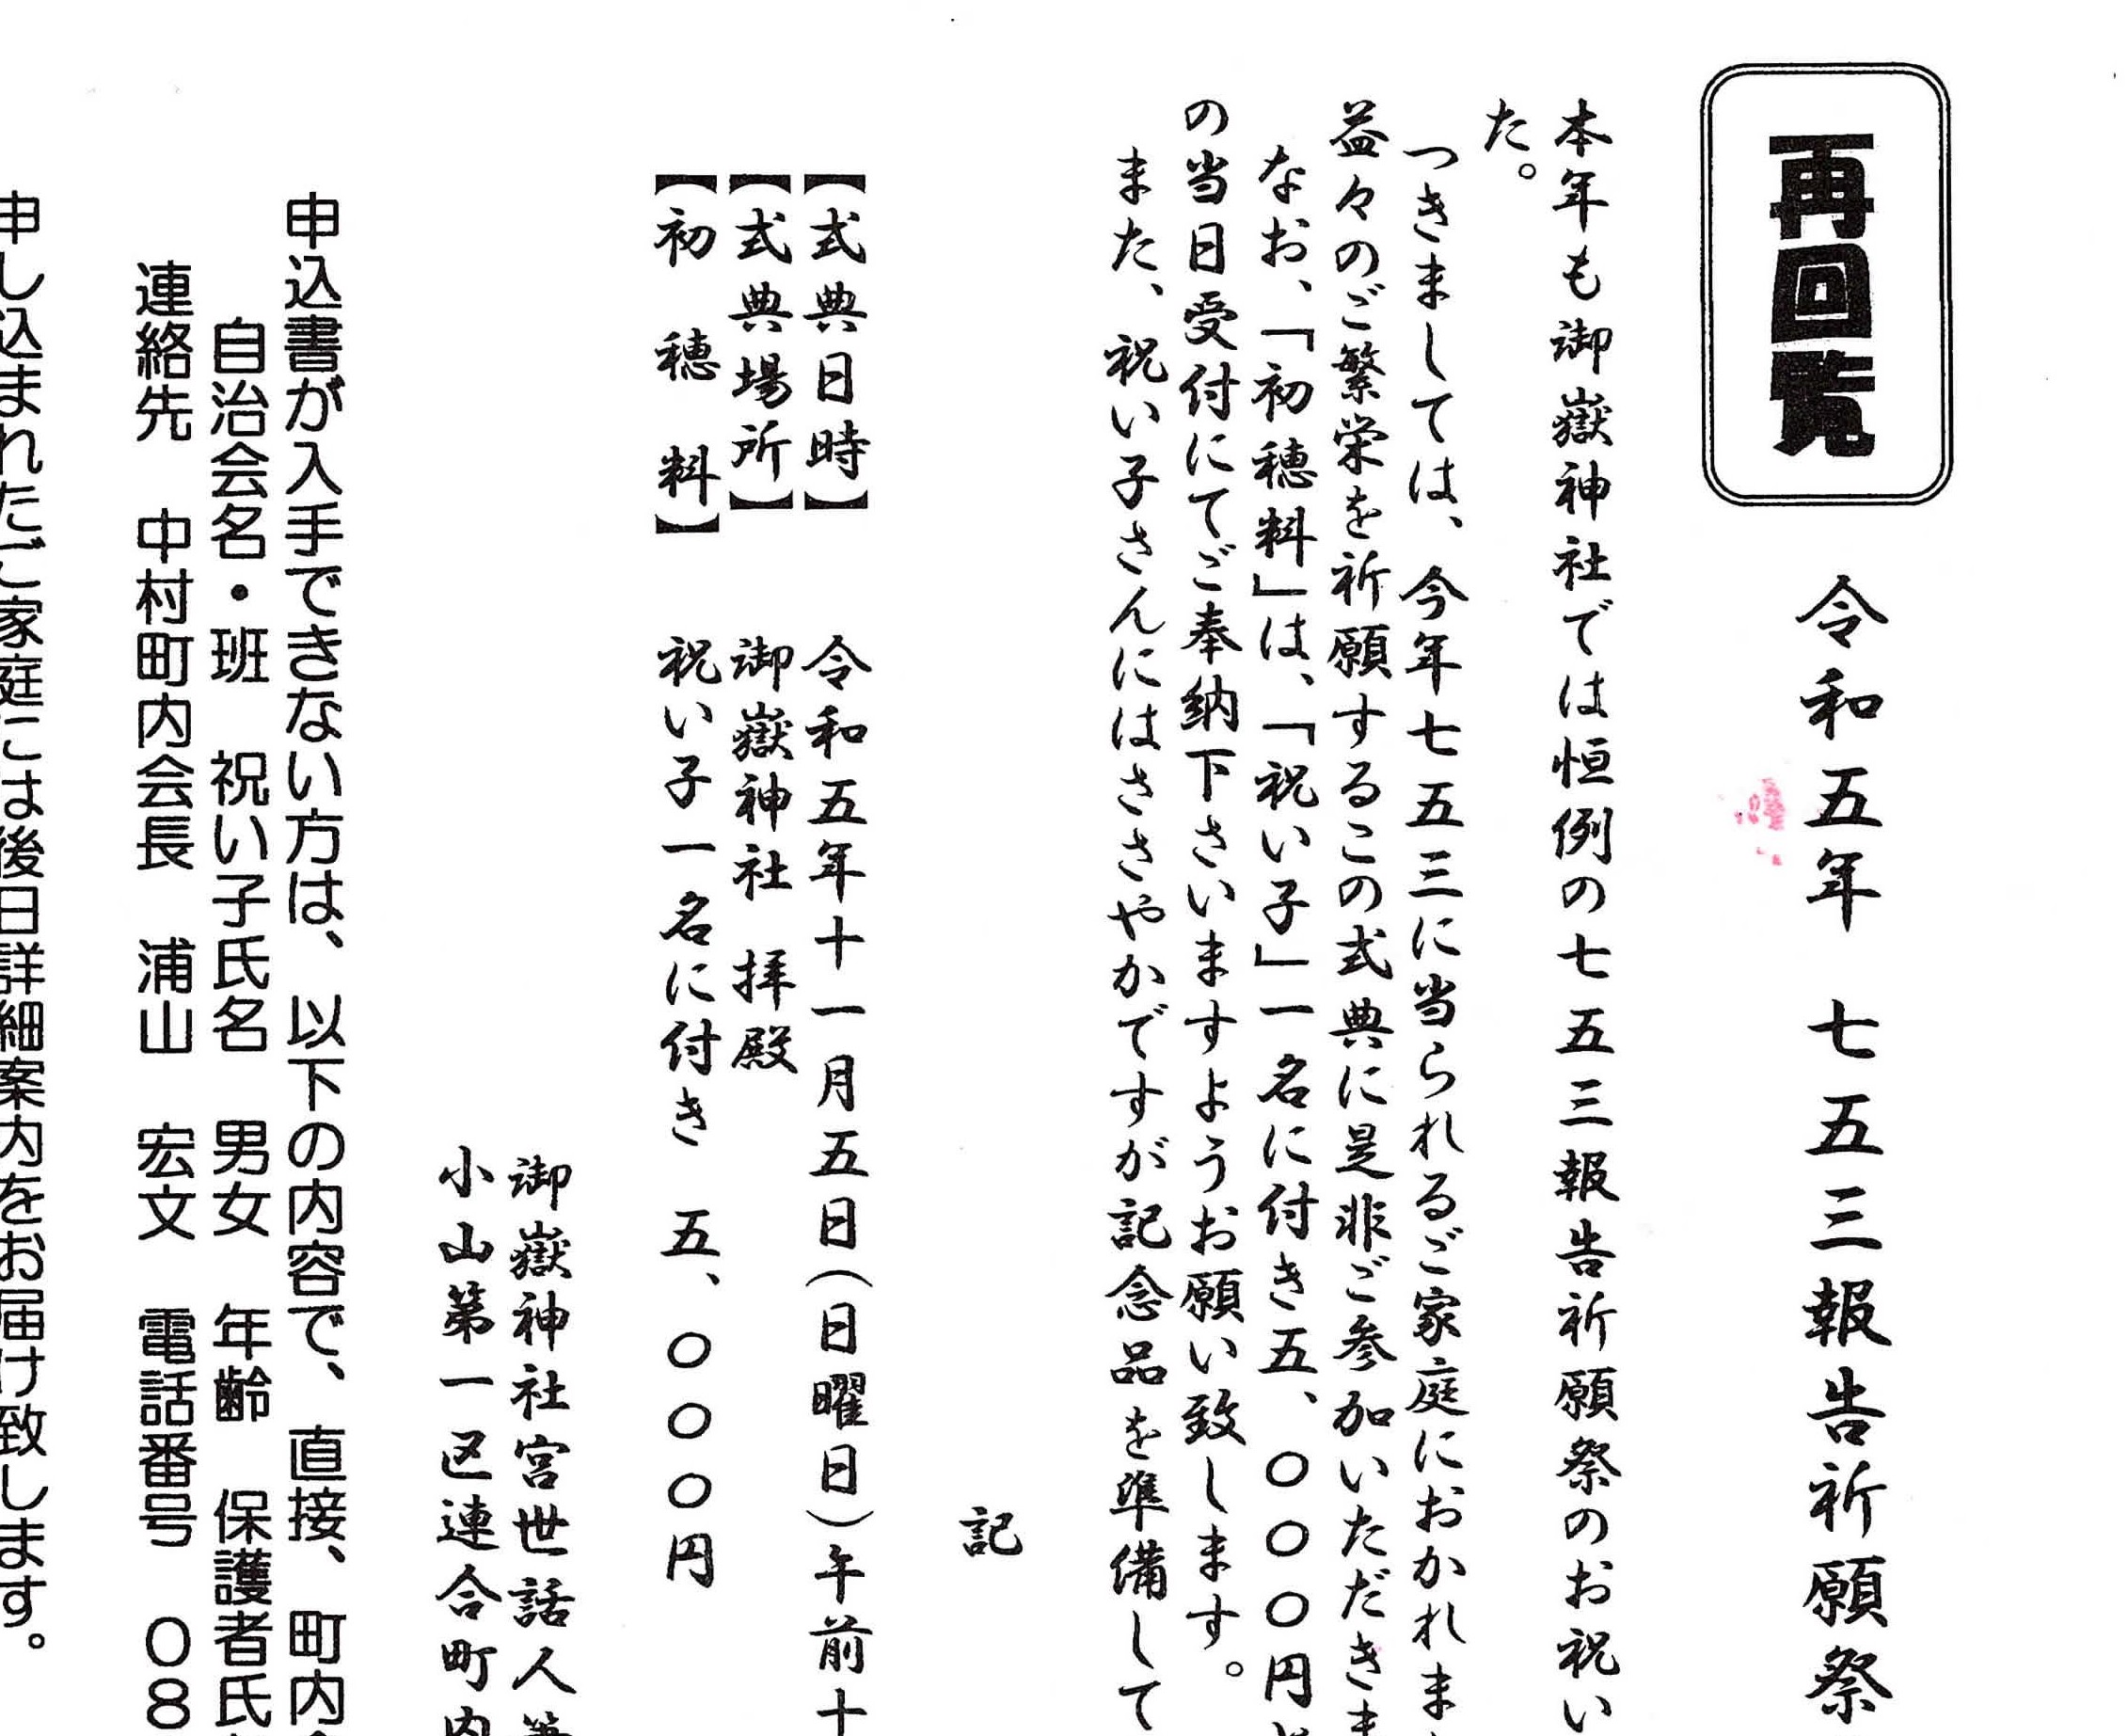 再回覧
令和五年 七五三報告祈願祭
本年も御嶽神社では恒例の七五三報告祈願祭のお祝い
た。
つきましては、今年七五三に当られるご家庭におかれま
益々のご繁栄を祈願するこの式典に是非ご参加いただきま
なお、「初穂料」は、「祝い子」一名に付き五、〇〇〇円
の当日受付にてご奉納下さいますようお願い致します。
また、祝い子さんにはささやかですが記念品を準備して
記
【式典日時】 令和五年十一月五日(日曜日)午前十
【式典場所】 御嶽神社 拝殿
【初穂料】 祝い子一名に付き 五、〇〇〇円
御嶽神社宮世話人
小山第一区連合町内
申込書が入手できない方は、以下の内容で、直接、町内
自治会名・班 祝い子氏名 男女 年齢 保護者氏
連絡先 中村町内会長 浦山 宏文 電話番号 08
申し込まれたご家庭には後日詳細案内をお届け致します。